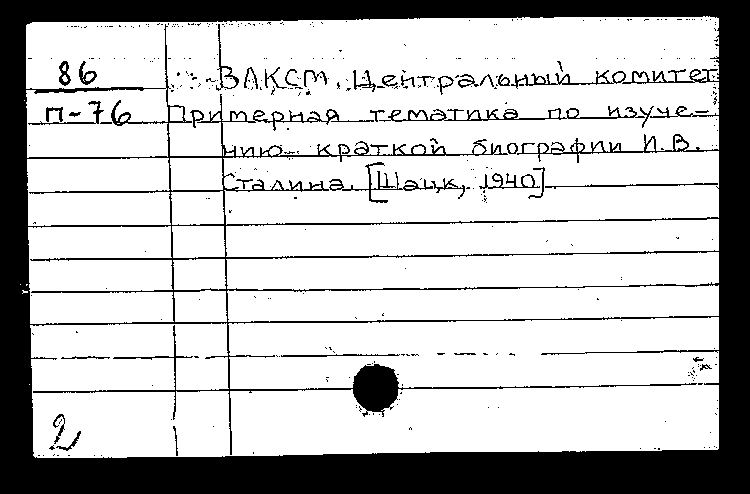 86
П-76
ВЛКСМ. Центральный комитет
Примерная тематика по изуче-
нию краткой биографии И.В.
Сталина. [Шацк, 1940].
2